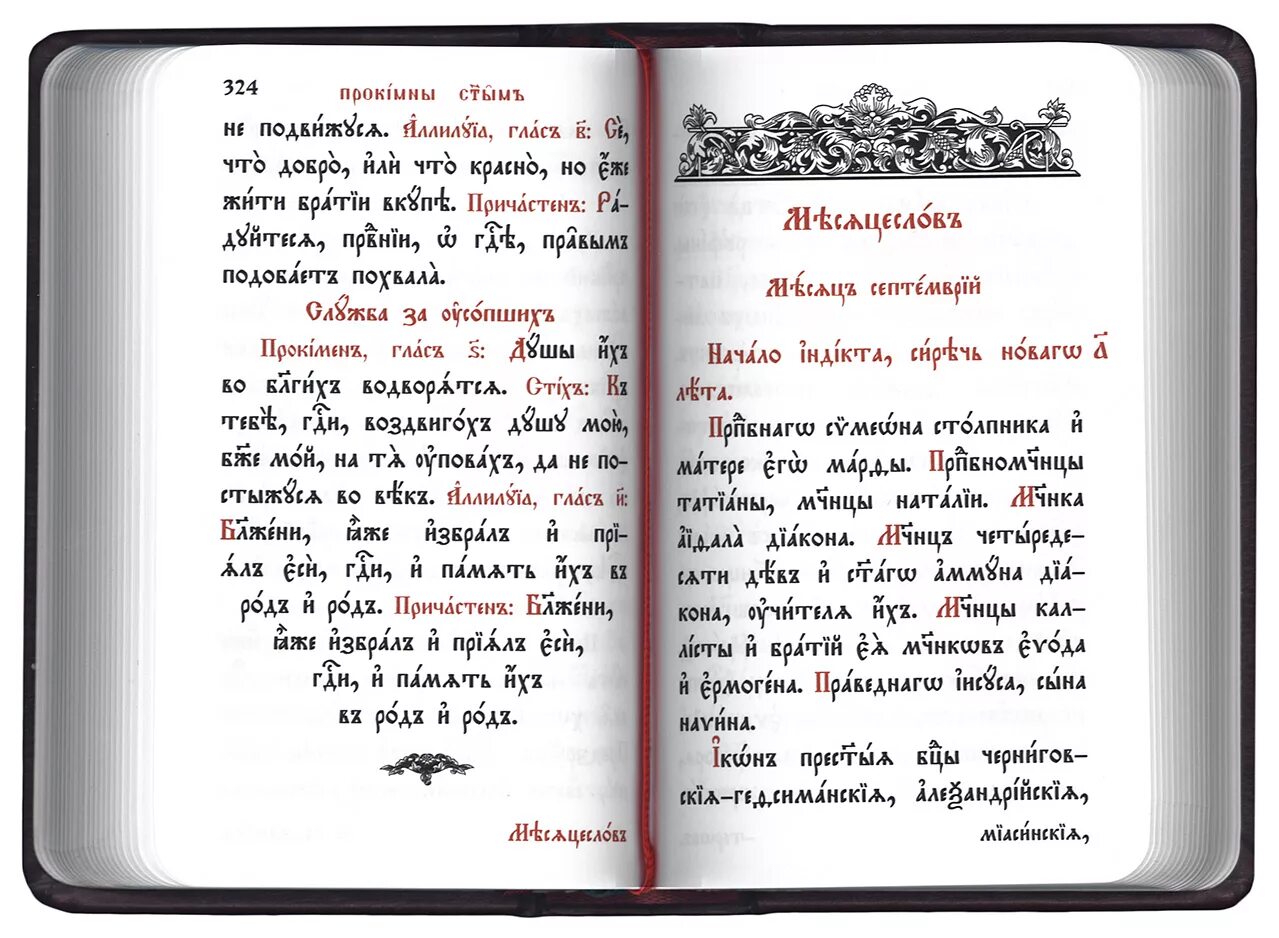 324
прокі́мны ст҃ы̑мъ
не подви́жꙋсѧ. А҆ллилꙋ́їа, гла́съ в҃: Сѐ,
что̀ добро̀, и҆лѝ что̀ красно̀, но є҆́же
жи́ти бра́тїи вкꙋ́пѣ. Прича́стенъ: Ра́-
дꙋйтесѧ, првⷣнїи, ѡ҆ гдⷭ҇ѣ, пра̑вымъ
подоба́етъ похвала̀.
Слꙋ́жба за ᲂу҆со́пшихъ
Прокі́менъ, гла́съ ѕ҃: Дꙋ́шы и҆́хъ
во бл҃ги́хъ водворѧ́тсѧ. Сті́хъ: Къ
тебѣ̀, гдⷭ҇и, воздвиго́хъ дꙋ́шꙋ мою̀,
бж҃е мо́й, на тѧ̀ ᲂу҆пова́хъ, да не по-
стыжꙋ́сѧ во вѣ́къ. А҆ллилꙋ́їа, гла́съ и҃:
Бл҃же́ни, ꙗ҆̀же и҆збра́лъ и҆ прїѧ́лъ
є҆сѝ, гдⷭ҇и, и҆ па́мѧть и҆́хъ въ
ро́дъ и҆ ро́дъ. Прича́стенъ: Бл҃же́ни,
ꙗ҆̀же и҆збра́лъ и҆ прїѧ́лъ є҆сѝ,
гдⷭ҇и, и҆ па́мѧть и҆́хъ
въ ро́дъ и҆ ро́дъ.
Мѣсѧцесло́въ
Мѣсѧцесло́въ
Мѣ́сѧцъ септе́мврїй
Нача́ло і҆нді́кта, си́рѣчь но́вагѡ а҃
лѣ́та.
Прпⷣбнагѡ сѷмеѡ́на сто́лпника и҆
ма́тере є҆гѡ̀ ма́рды. Прпⷣбномч҃нцы
татїа́ны, мч҃нцы ната́лїи. Мч҃нка
а҆їдала̀ дїа́кона. Мч҃нцъ четы́реде-
сѧти дѣ́въ и҆ ст҃а́гѡ а҆ммꙋ́на дїа́-
кона, ᲂу҆чи́телѧ и҆́хъ. Мч҃нцы кал-
лі́сты и҆ бра́тїй є҆ѧ̀ мч҃нкѡвъ є҆ѵо́да
и҆ є҆рмоге́на. Пра́веднагѡ і҆исꙋ́са, сы́на
наѵи́на.
І҆кѡ́нъ прест҃ы́ѧ бцⷣы черни́гов-
скїѧ-геѳсима́нскїѧ, а҆леѯандрі́йскїѧ,
мїаси́нскїѧ,